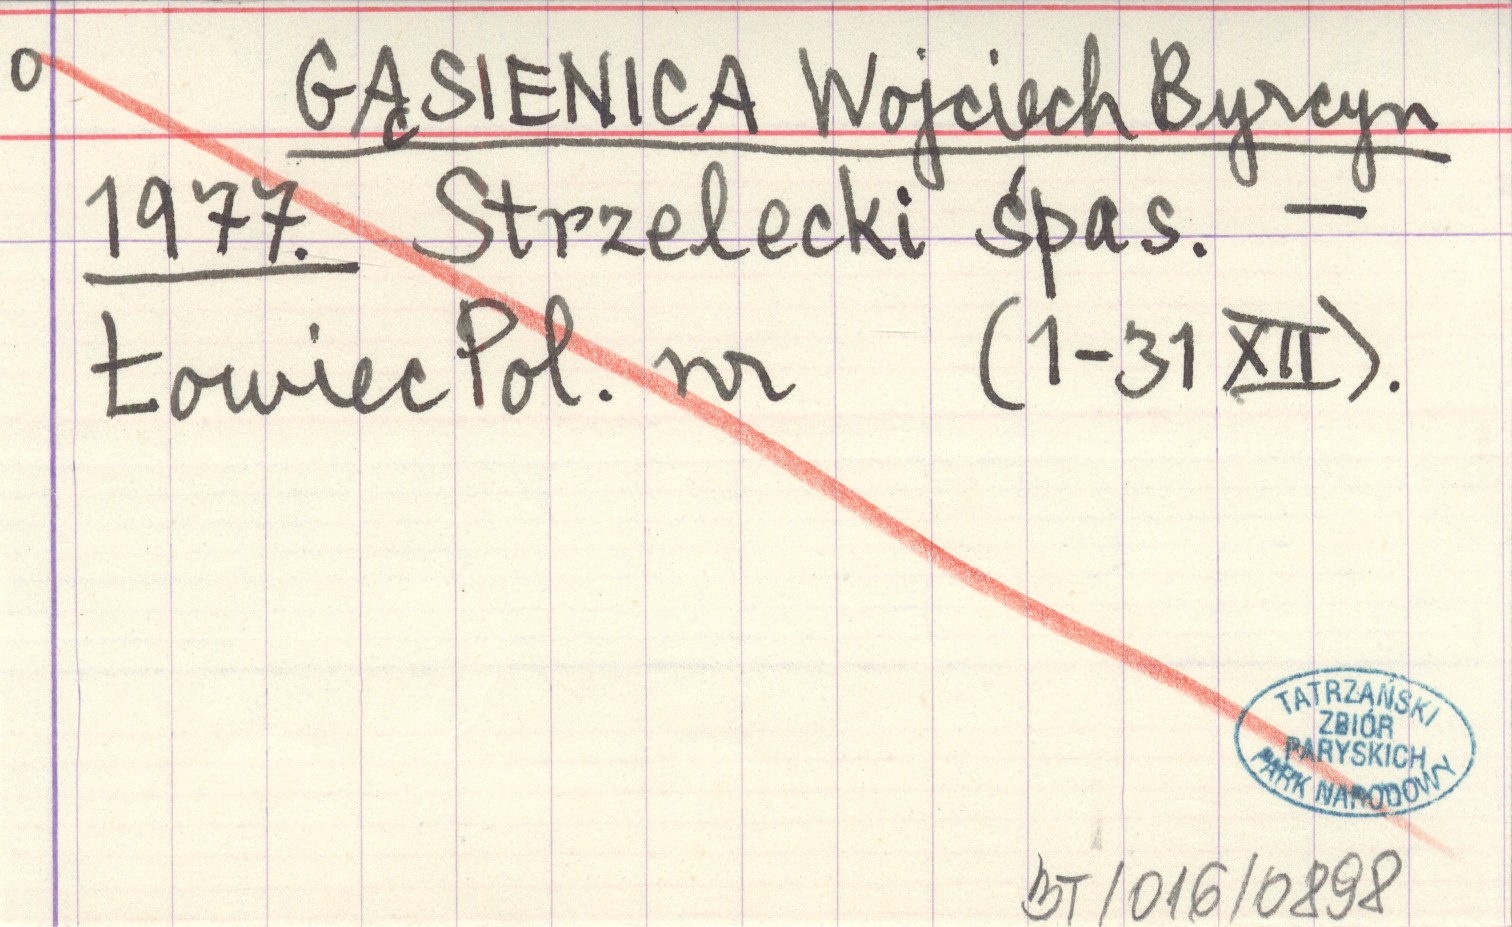 o GĄSIENICA Wojciech Byrcyn
1977. Strzelecki śpas. —
Łowiec Pol. nr (1-31 XII).
TATRZAŃSKI
ZBIÓR
PARYSKICH
PARK NARODOWY
BT/016/0898